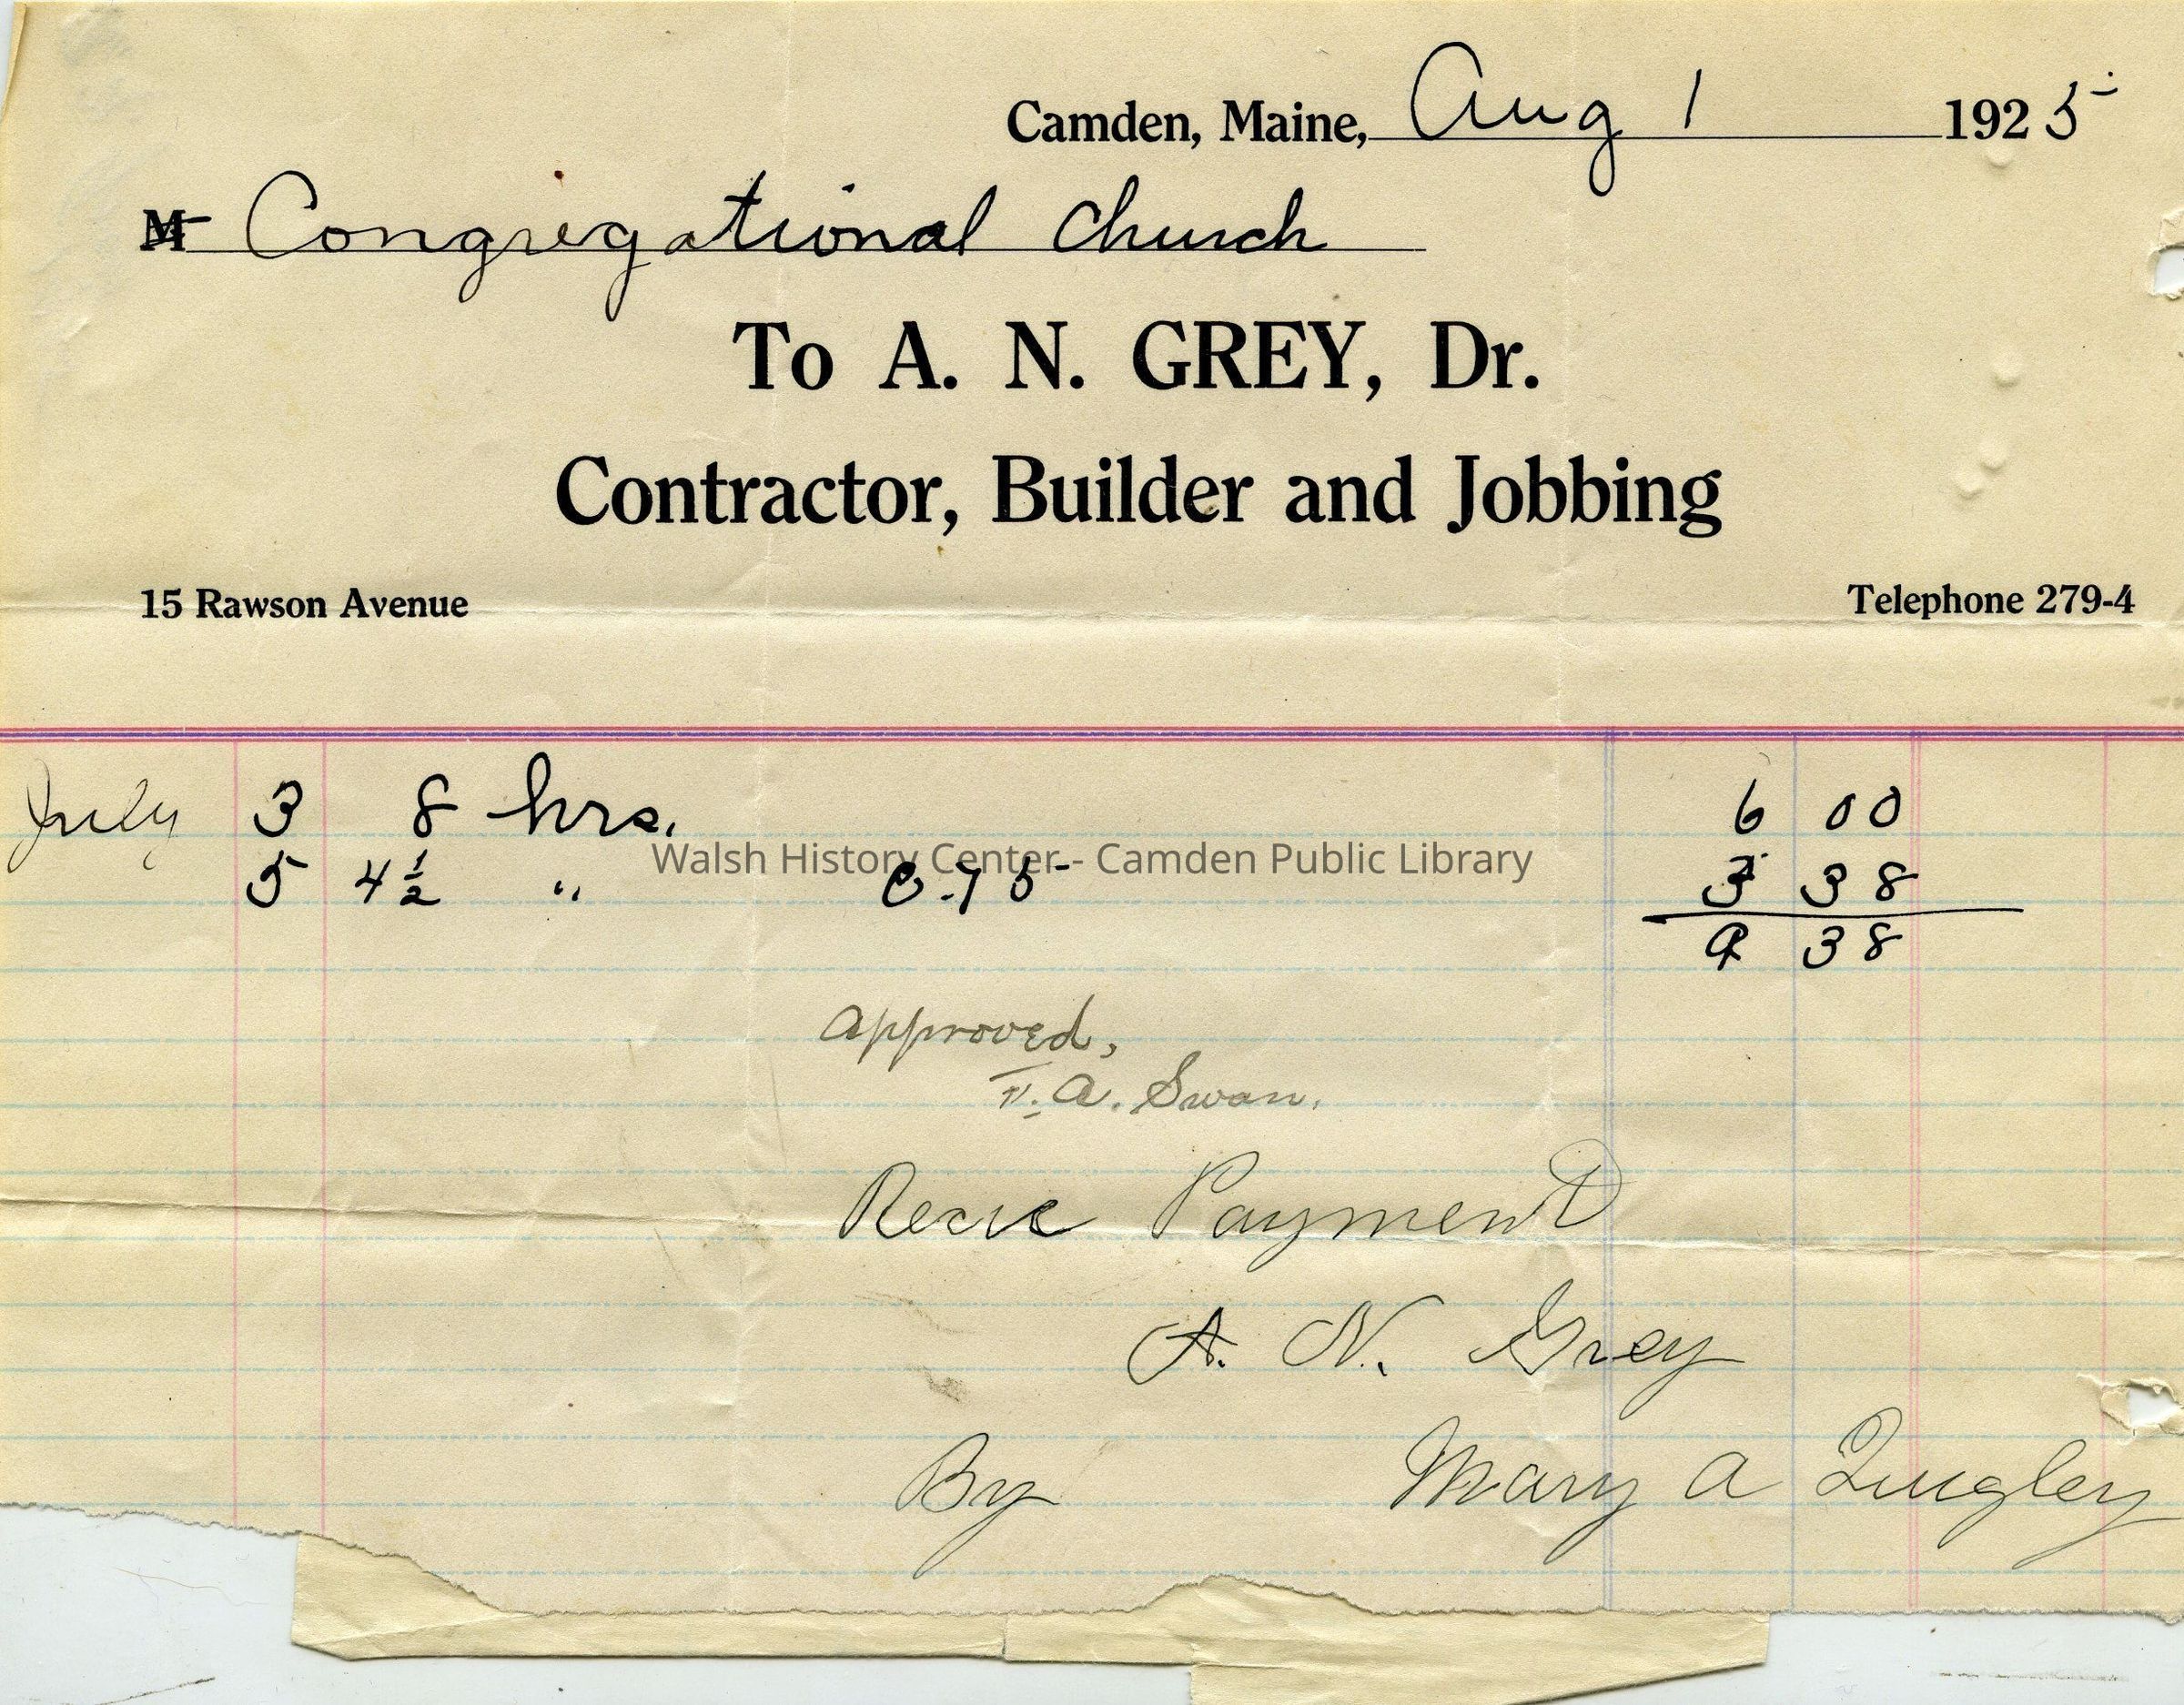 Camden, Maine, Aug 1 1925
M Congregational Church
To A. N. GREY, Dr.
Contractor, Builder and Jobbing
15 Rawson Avenue Telephone 279-4
July 3 8 hrs. 6 00
Walsh History Center - Camden Public Library
5 4½ " @ .75 3 38
9 38
Approved,
T. A. Swan.
Payment
A. N. Grey
By Mary A